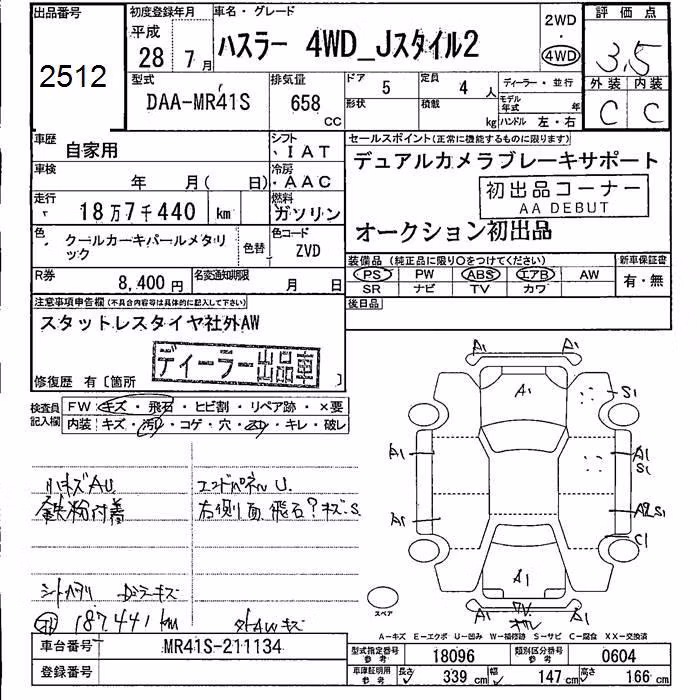 出品番号
2512
初度登録年月
平成
28年 7月
車名・グレード
ハスラー 4WD_Jスタイル2
2WD
・
4WD
評価点
3.5
外装 内装
C C
型式
DAA-MR41S
排気量
658 CC
ドア 5
形状
定員 4 人
積載 kg
ディーラー・並行
モデル年式 年
ハンドル 左・右
車歴 自家用
シフト ・IAT
車検 年 月( 日)
冷房 ・AAC
走行 18万7千440 km
燃料 ガソリン
色 クールカーキパールメタリック
色替
色コード ZVD
R券 8,400円
名変通知期限 月 日
セールスポイント(正常に機能するものに限ります)
デュアルカメラブレーキサポート
初出品コーナー
AA DEBUT
オークション初出品
装備品(純正品に限り○をつけてください)
PS PW ABS エアB AW
SR ナビ TV カワ
新車保証書
有・無
後日品
注意事項申告欄(不具合内容等は具体的に記入して下さい)
スタットレスタイヤ社外AW
ディーラー出品車
修復歴 有〔箇所 〕
検査員記入欄
FW キズ・飛石・ヒビ割・リペア跡・×要
内装 キズ・汚れ・コゲ・穴・スレ・キレ・破レ
小キズAU
エンドパネルU.
鉄粉付着
右側面 飛石?キズ.S
シートヘタリ
187,441km
外AWキズ
A1 A1
A1 S1
A1 A1
S1
A1 A2 S1
C1
A1
A1 A1
スペア
A-キズ E-エクボ U-凹み W-補修跡 S-サビ C-腐食 XX-交換済
車台番号 MR41S-211134
登録番号
型式指定番号 参考 18096
類別区分番号 参考 0604
車庫証明用 参考 長さ 339 cm 幅 147 cm 高さ 166 cm